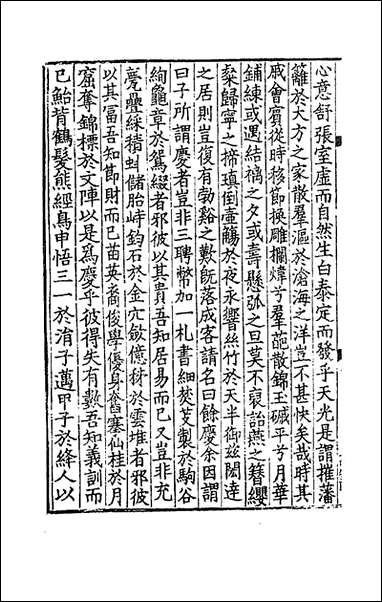 心意舒張室虛而自然生白泰定而發乎天光是謂摧藩
籬於大方之家散羣漚於滄海之洋豈不甚快矣哉時其
戚會賓從時移節換雕攔煒兮羣葩散錦玉碱平兮月華
鋪練或遇結褵之夕或壽懸弧之旦莫不裒詒燕之簪纓
粲歸寧之掃瑱倒壼觴於夜永響絲竹於天半御兹闥達
之居則豈復有勃谿之歎旣落成客請名曰餘慶余因謂
曰子所謂慶者豈非三聘幣加一札書細茭芰製於駒谷
絢龜章於鴛綴者邪彼以其貴吾知居易而已又豈非充
甍疊綵積蚶儲胎峙鈞石於金穴斂億秭於雲堆者邪彼
以其富吾知節財而已苗英裔俊學優身奮塞仙桂於月
窟奪錦標於文陣以是為慶乎彼得失有數吾知義訓而
已鮐背鶴髮熊經鳥申悟三一於涓子邁甲子於絳人以